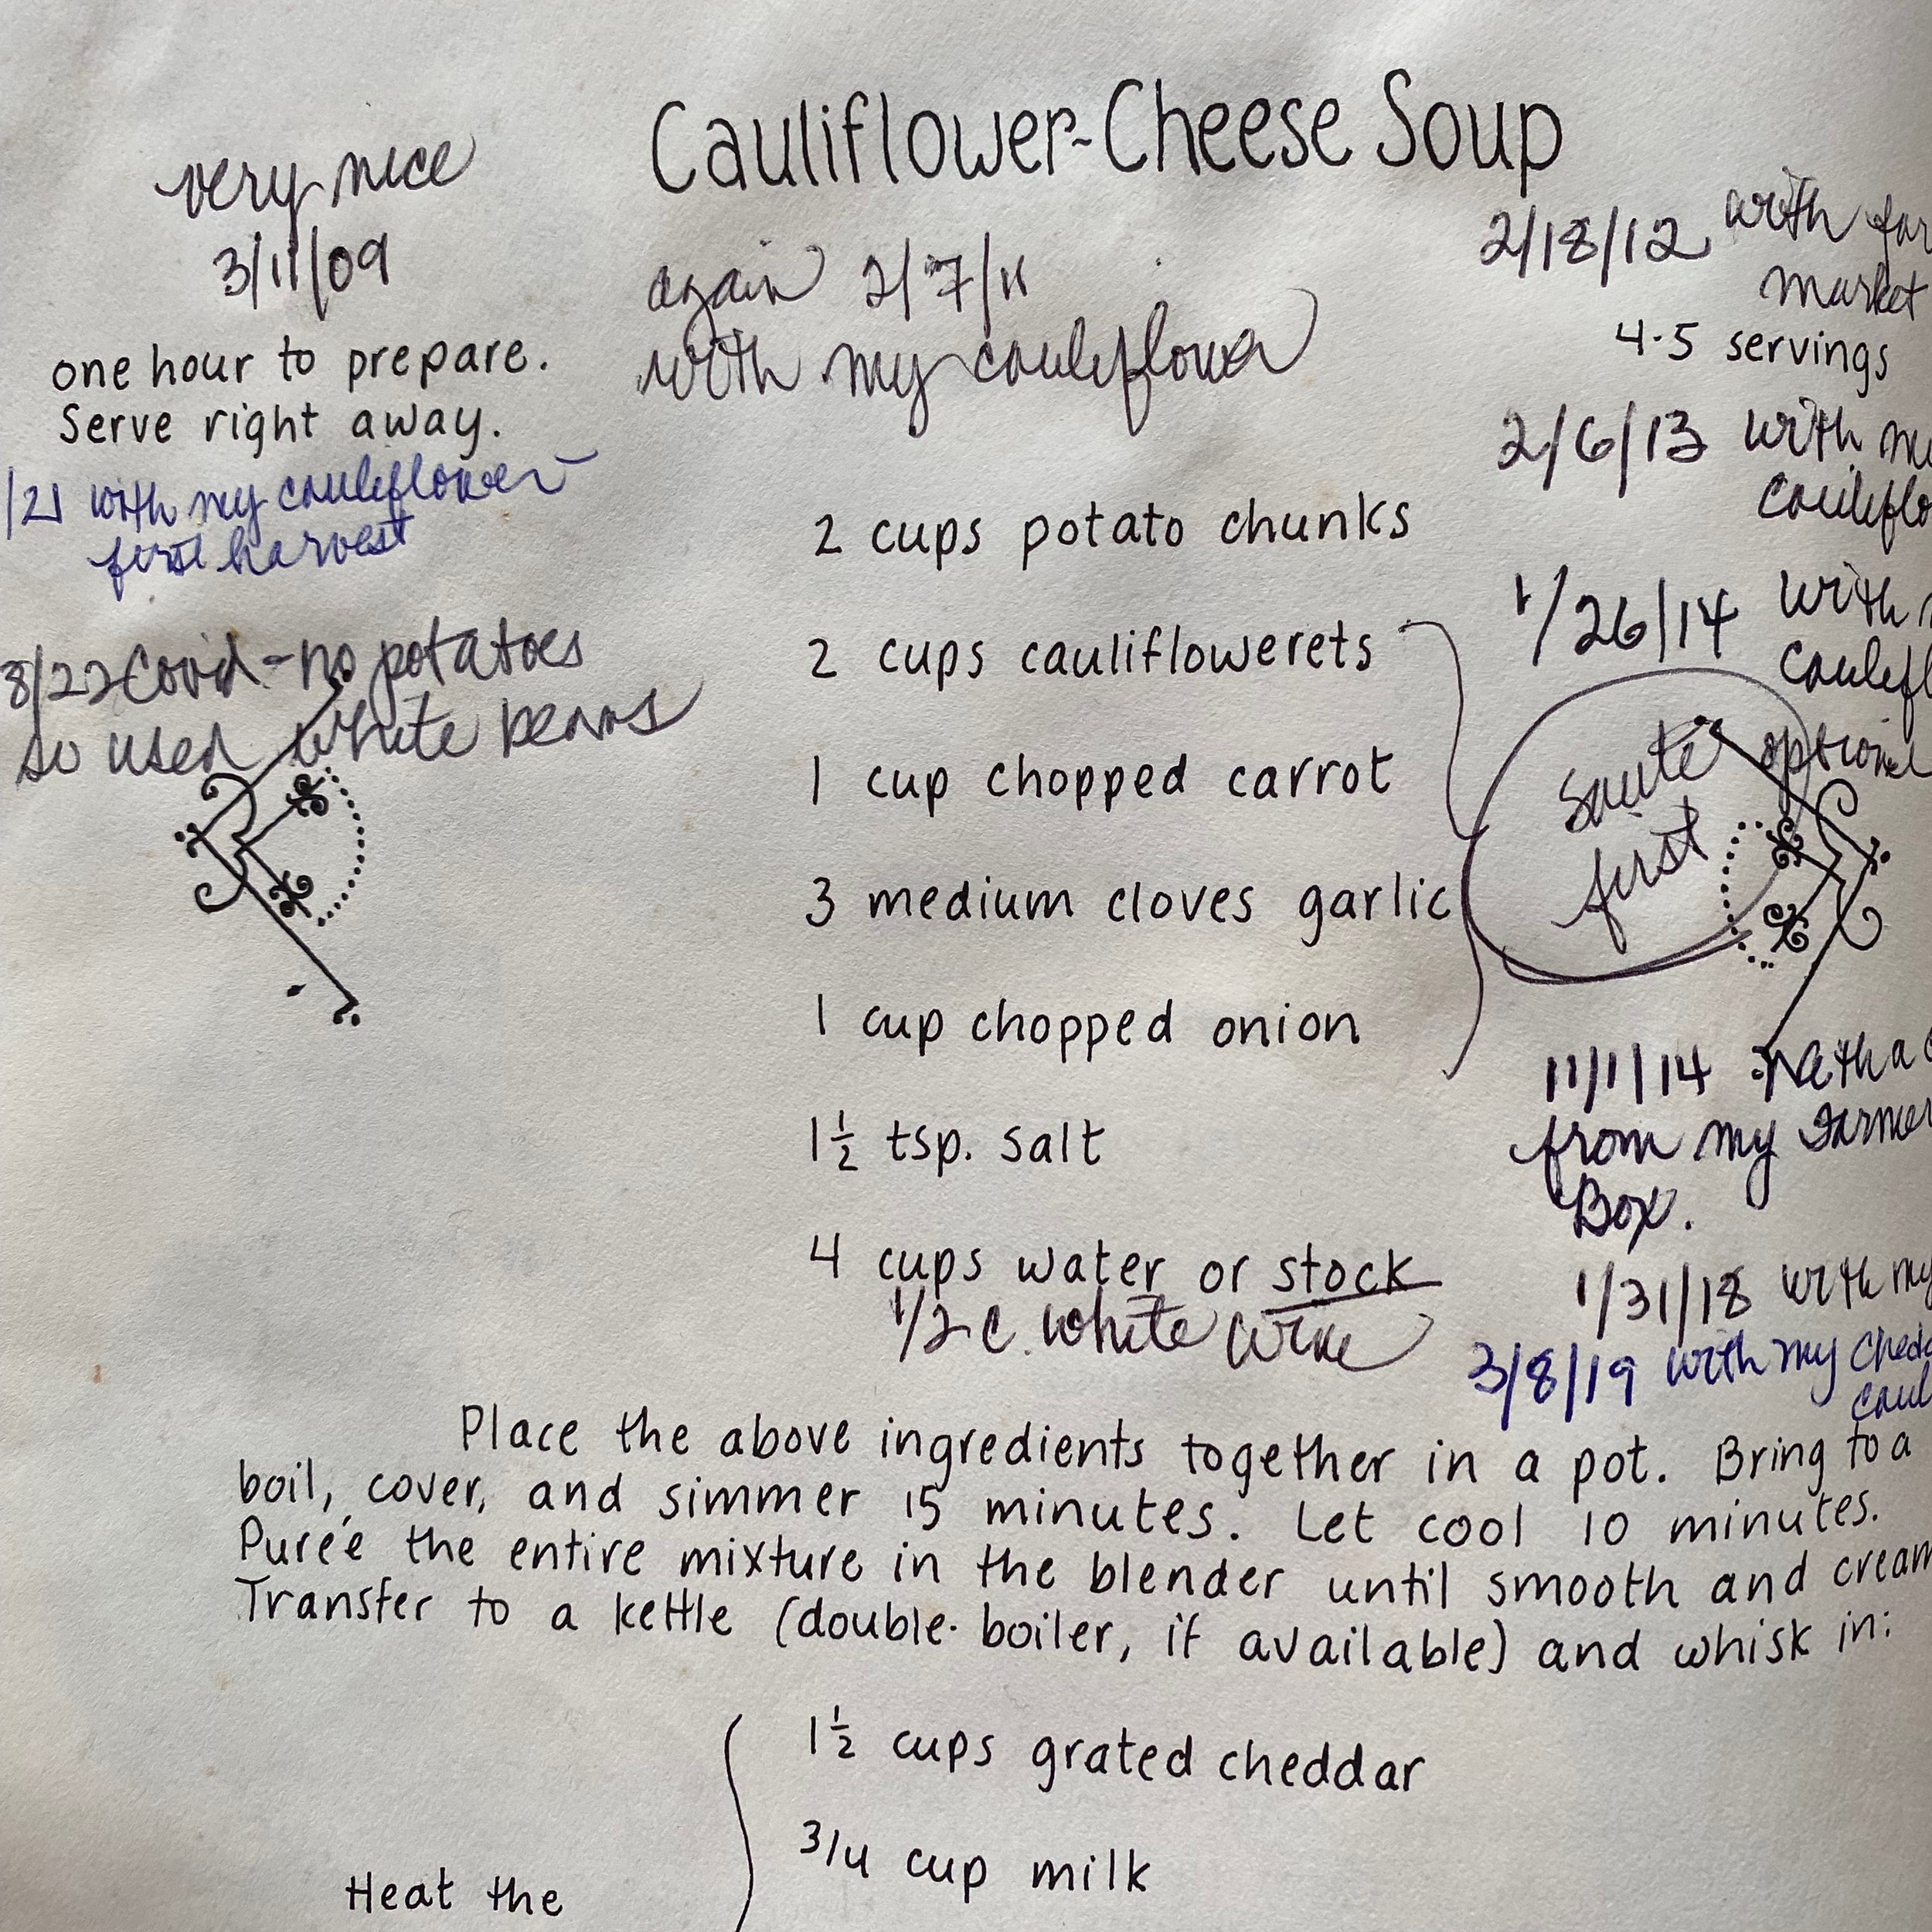 Cauliflower-Cheese Soup
very nice
3/11/09
one hour to prepare.
Serve right away.
/21 with my cauliflower
first harvest
8/22 Covid - no potatoes
so used white beans
again 2/7/11
with my cauliflower
2/18/12 with
market
4-5 servings
2/6/13 with
1/26/14 with
optional
Saute
first
2 cups potato chunks
2 cups cauliflowerets
1 cup chopped carrot
3 medium cloves garlic
1 cup chopped onion
1½ tsp. salt
4 cups water or stock
1/2 c. white wine
11/1/14
from my
Box.
1/31/18 with my
3/8/19 with my
Place the above ingredients together in a pot. Bring to a
boil, cover, and simmer 15 minutes. Let cool 10 minutes.
Pureé the entire mixture in the blender until smooth and
Transfer to a kettle (double-boiler, if available) and whisk in:
1½ cups grated cheddar
3/4 cup milk
Heat the